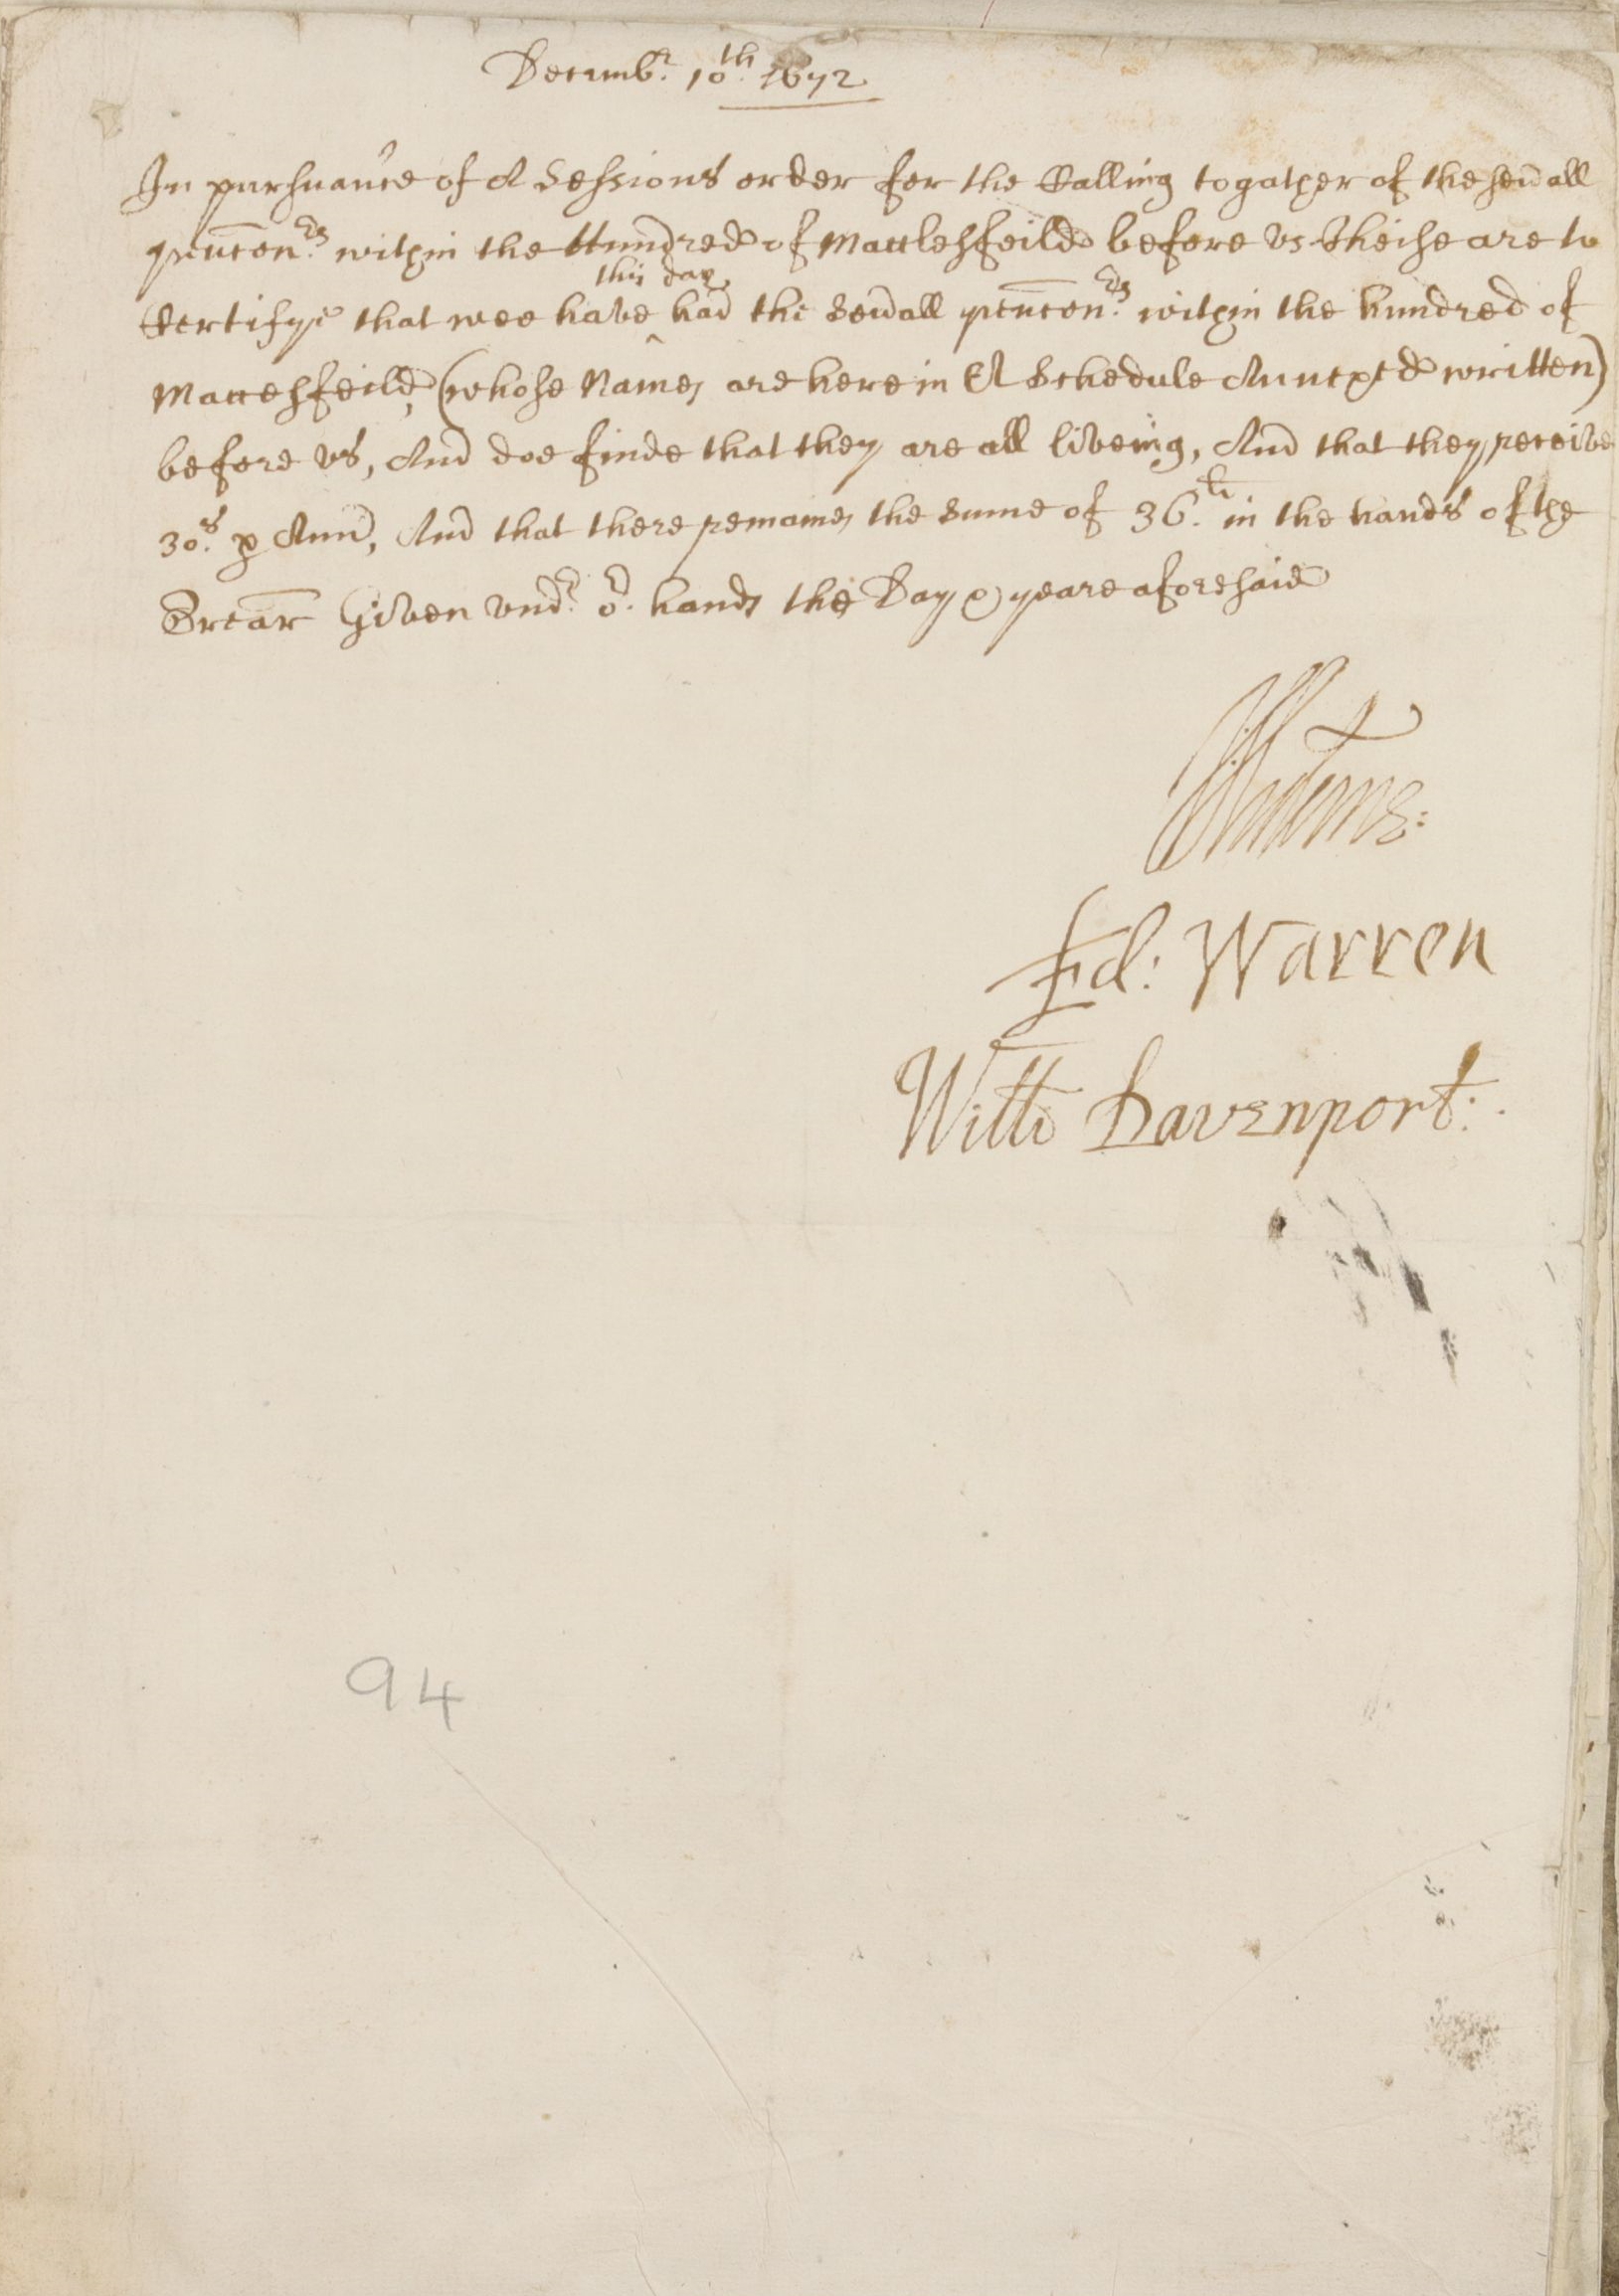 Decemb:r 10th: 1672
In pursuance of A Sessions order for the Calling togather of the seu̅all
pencon:rs within the Hundred of Macclesfeild before vs Theise are to
this day
Certifye that wee have had the Seu̅all pencon:rs within the hundred of
Maccesfeild, (whose Names are here in A Schedule Annexed written)
before vs, And doe finde that they are all liveing, And that they receive
30:s p Ann̅, And that there remaines the sume of 36:li in the hands of the
Trear̅ Given vnd:r o:r hands the Day & yeare aforesaid
Ed: Warren
Willm Davenport:
94